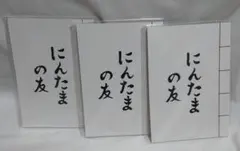 にんたま
の友
にんたま
の友
にんたま
の友